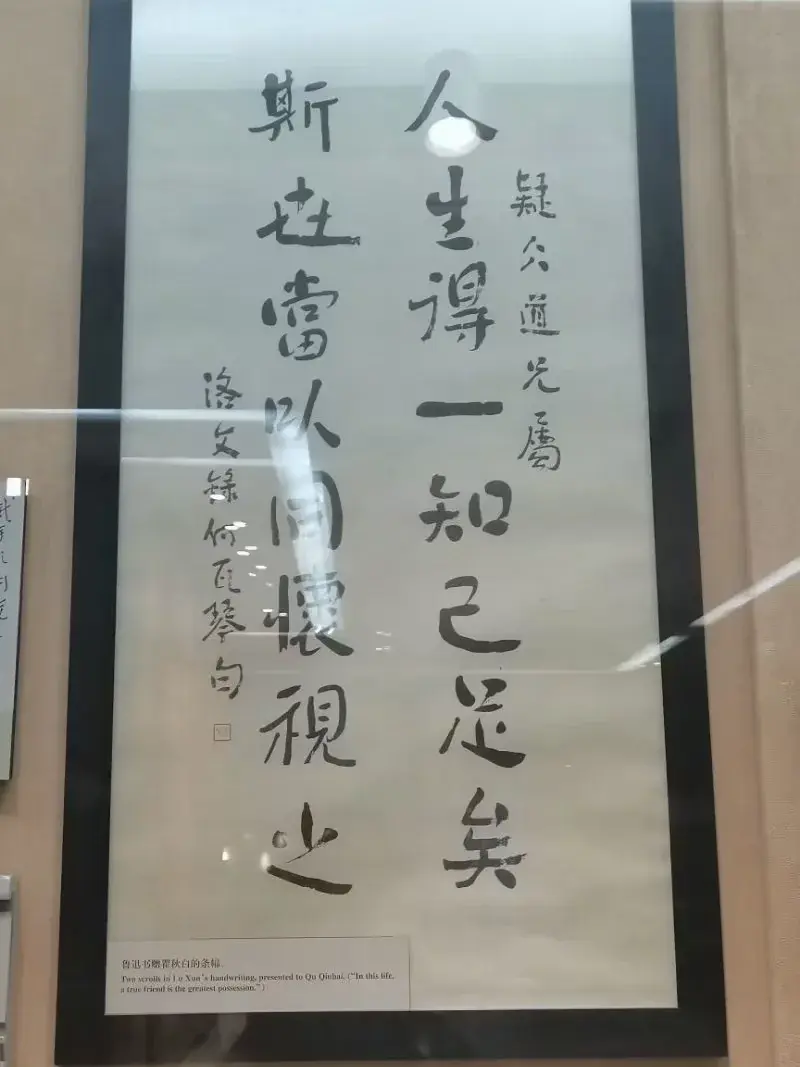 疑仌道兄屬
人生得一知己足矣
斯世當以同懷視之
洛文錄何瓦琴句
鲁迅书赠瞿秋白的条幅
Two scrolls in Lu Xun's handwriting, presented to Qu Qiubai. ("In this life,
a true friend is the greatest possession.")